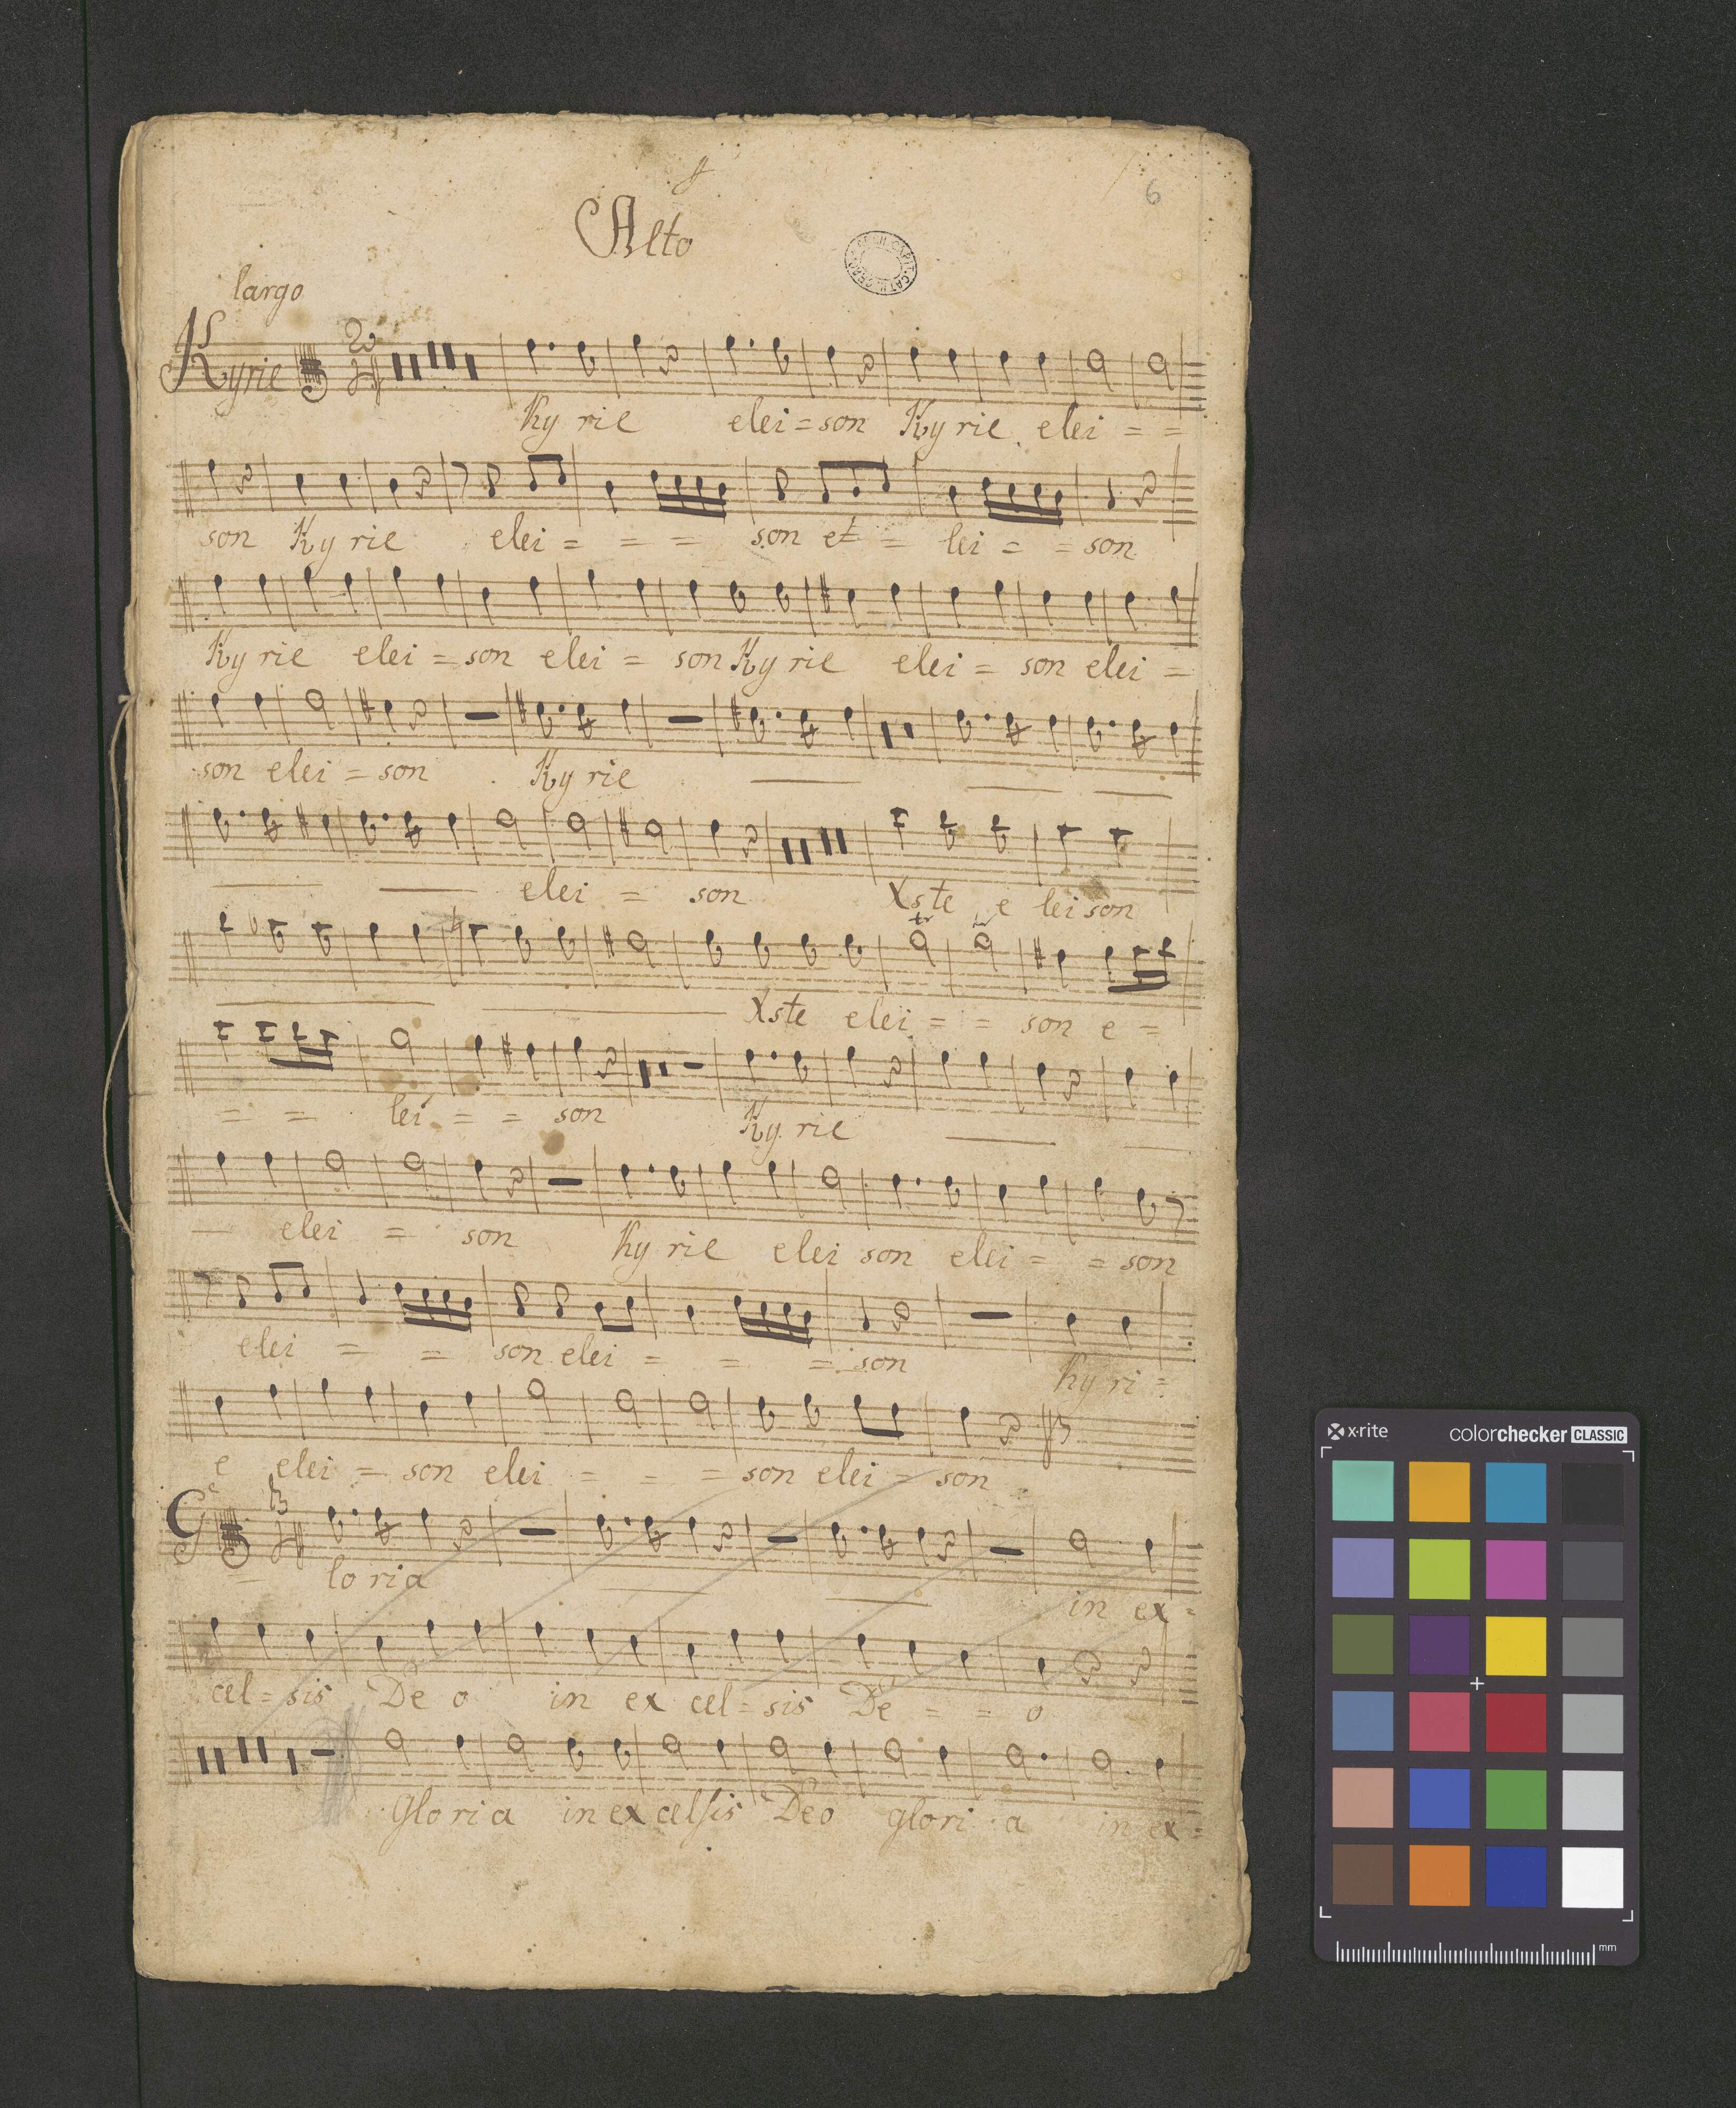 6
Alto
largo
Kyrie
Ky rie elei = son Ky rie elei = =
son Ky rie elei = = = son e = = lei = = son
Ky rie elei = son elei = son Ky rie elei = son elei =
son elei = son Ky rie
elei = son Xste e lei son
tr tr
Xste elei = = son e =
= = lei = = son Ky rie
elei = son Ky rie elei son elei = = son
elei = = son elei = = = son Ky ri =
e elei = son elei = = = son elei = son
G lo ria in ex =
cel = sis De o in ex cel = sis De = = o
Glo ri a in ex celsis Deo glori a in ex =
x·rite colorchecker CLASSIC
mm